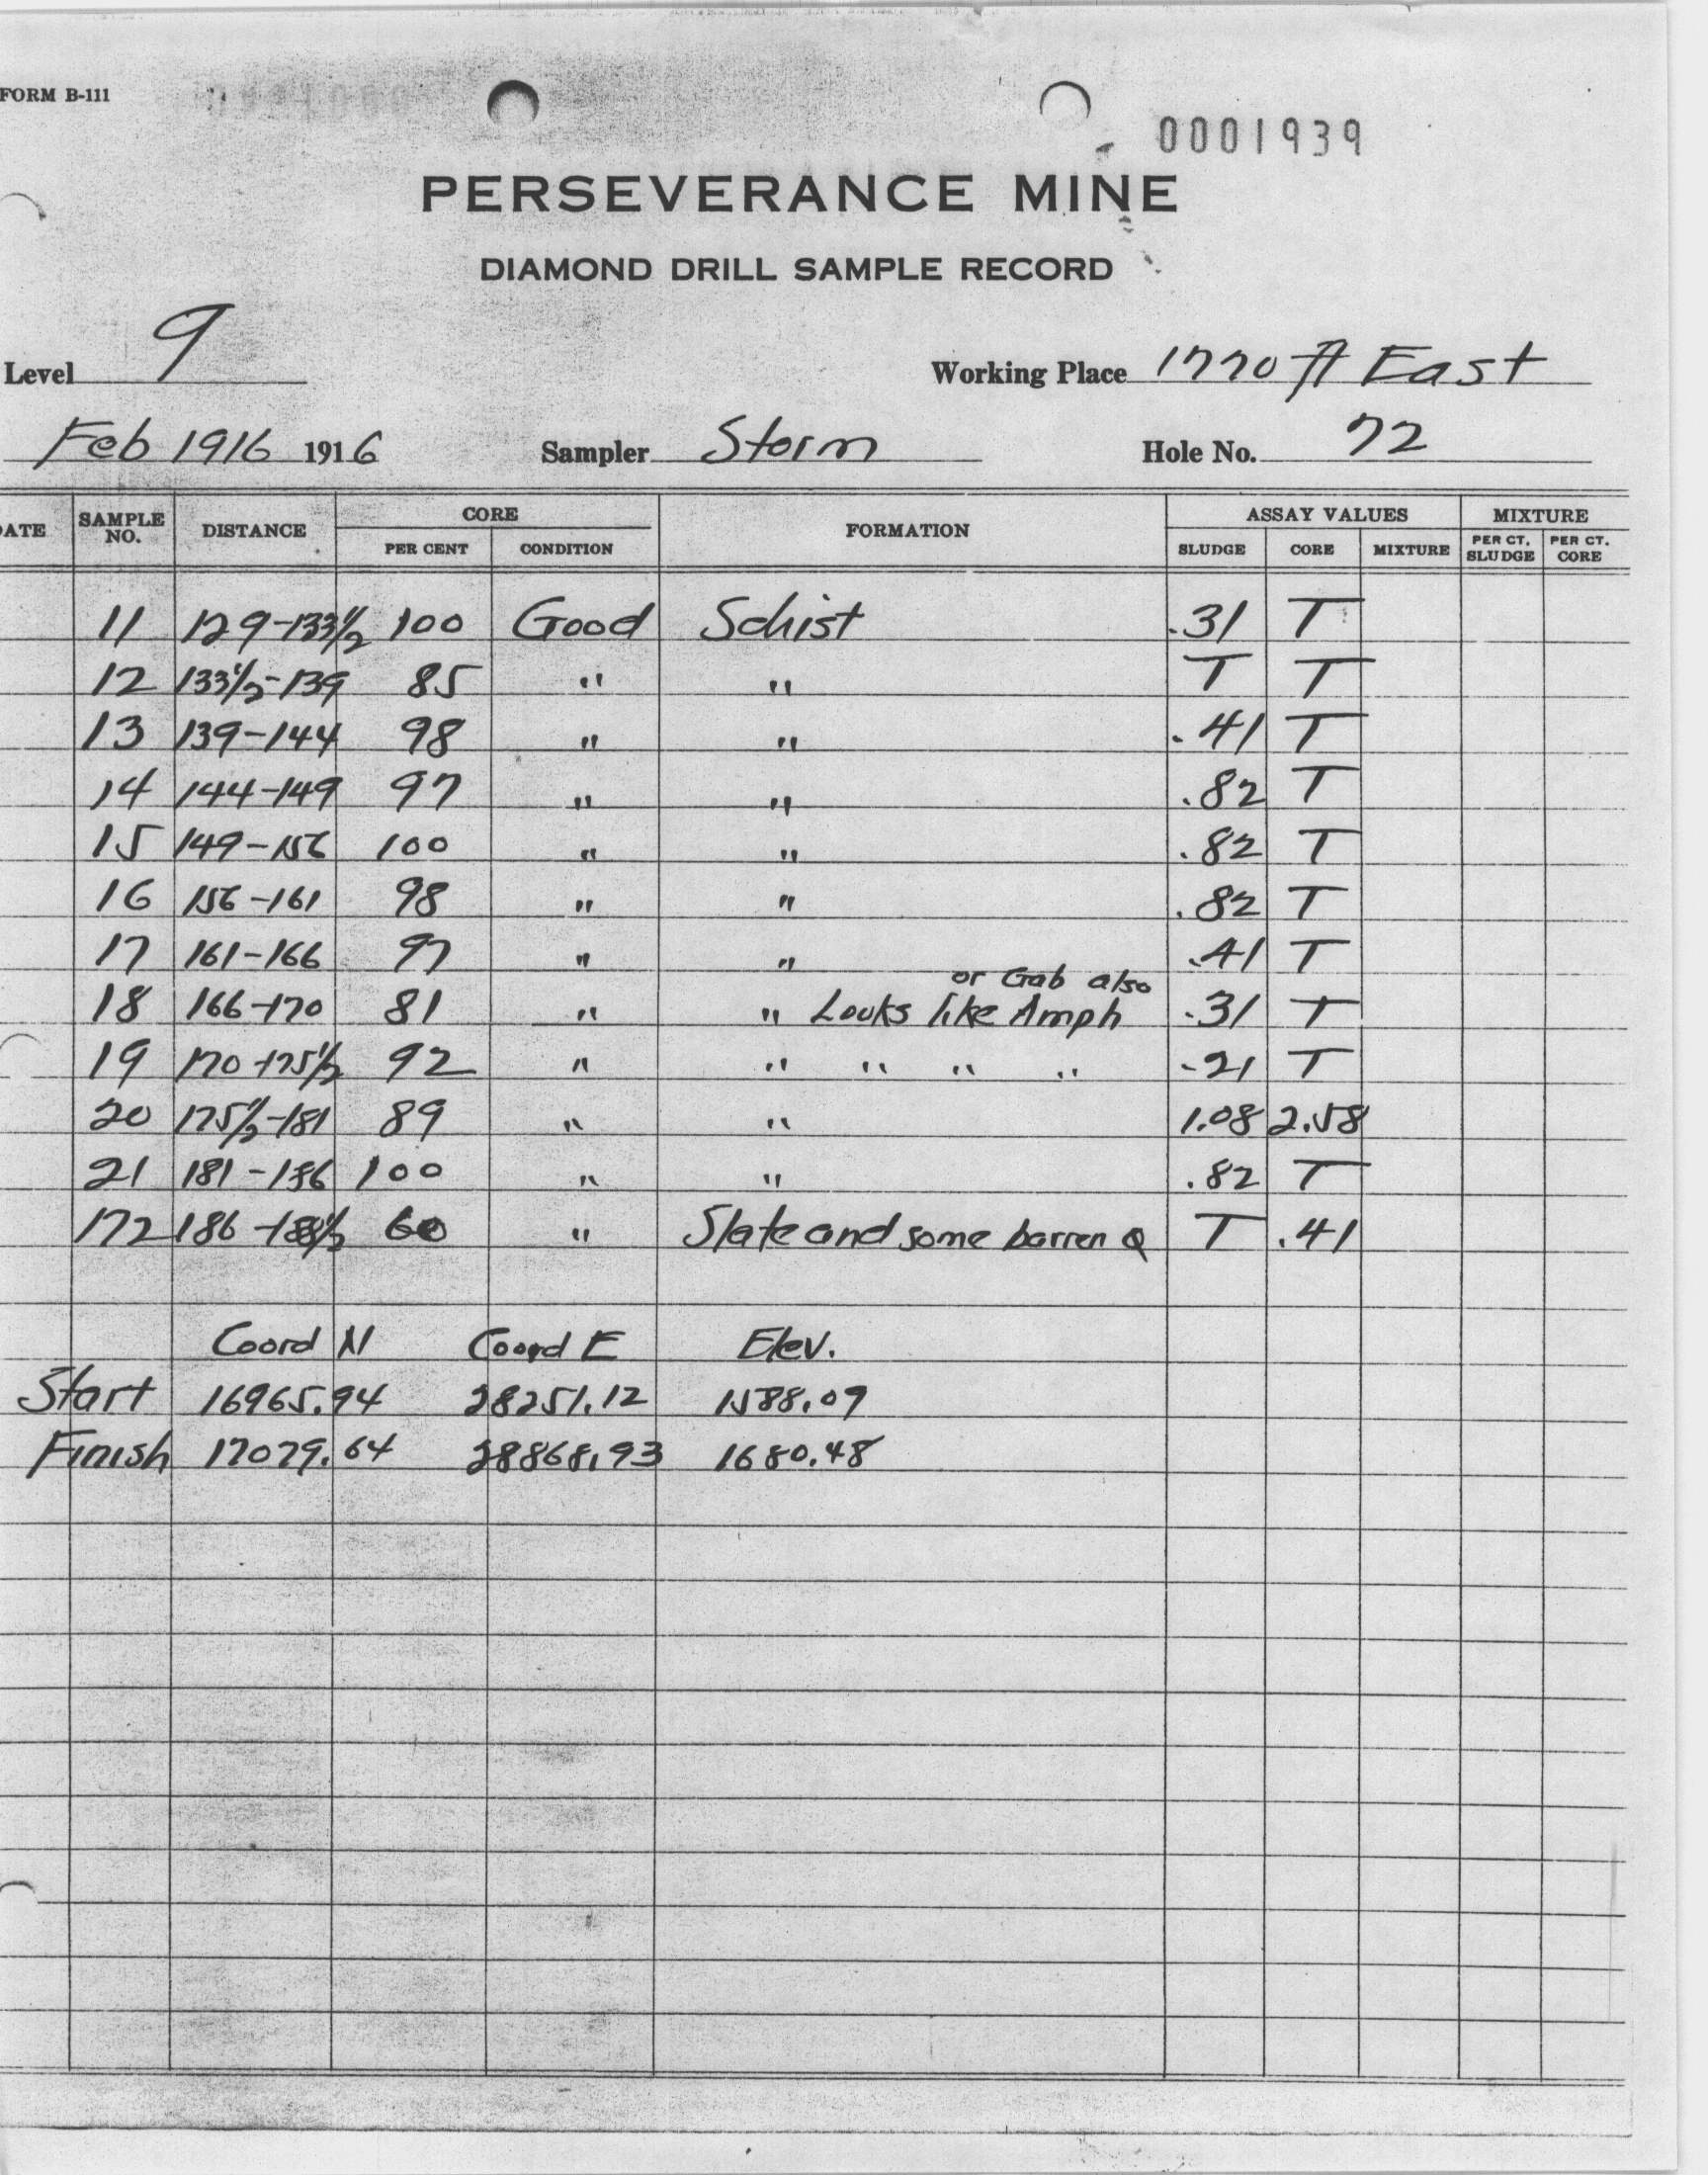 FORM B-111
0001939
PERSEVERANCE MINE
DIAMOND DRILL SAMPLE RECORD
Level 9 Working Place 1770 ft East
Feb 1916 1916 Sampler Storm Hole No. 72
ATE SAMPLE NO. DISTANCE CORE PER CENT CONDITION FORMATION ASSAY VALUES SLUDGE CORE MIXTURE MIXTURE PER CT. SLUDGE PER CT. CORE
11 129-133½ 100 Good Schist .31 T
12 133½-139 85 " " T T
13 139-144 98 " " .41 T
14 144-149 97 " " .82 T
15 149-156 100 " " .82 T
16 156-161 98 " " .82 T
17 161-166 97 " " .41 T
or Gab also
18 166-170 81 " " Looks like Amph .31 T
19 170-175½ 92 " " " " " .21 T
20 175½-181 89 " " 1.08 2.58
21 181-186 100 " " .82 T
172 186-188½ 60 " Slate and some barren Q T .41
Coord N Coord E Elev.
Start 16965.94 28251.12 1588.09
Finish 17079.64 28868.93 1680.48